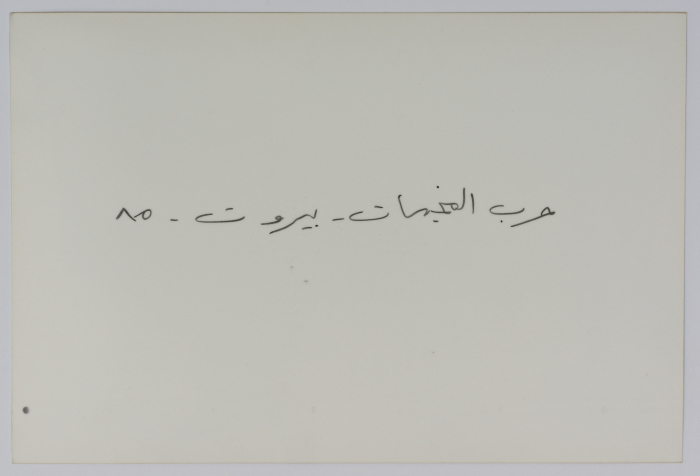 حرب المخيمات - بيروت - ٨٥